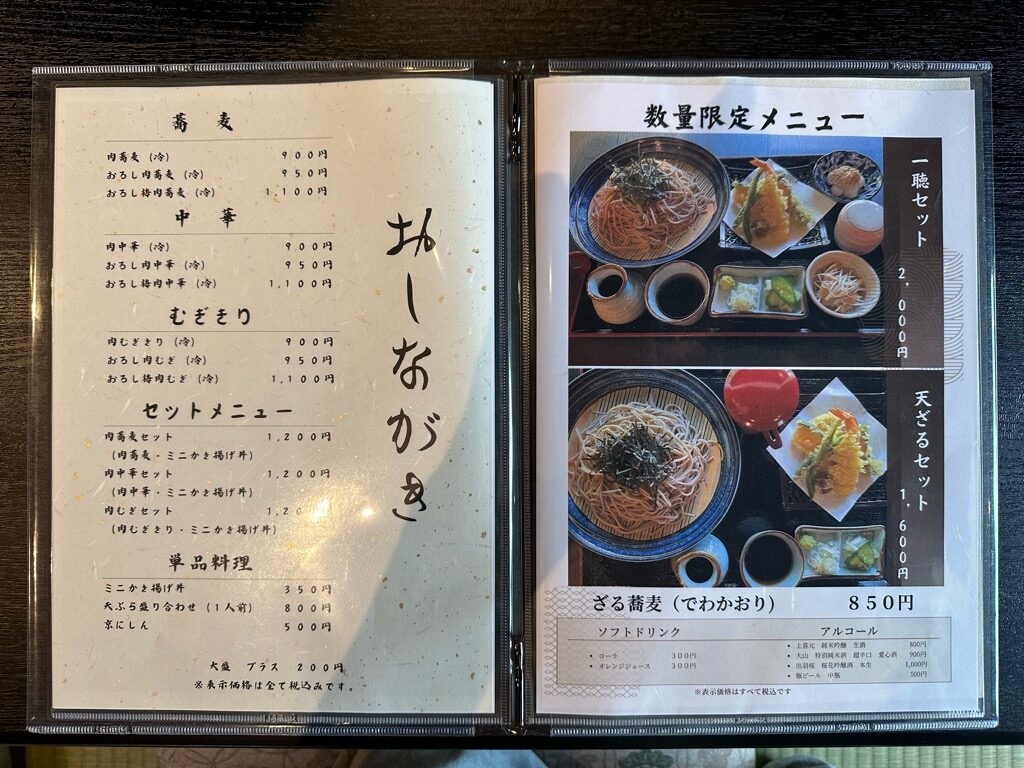 蕎麦
肉蕎麦（冷） 900円
おろし肉蕎麦（冷） 950円
おろし梅肉蕎麦（冷） 1,100円
中華
肉中華（冷） 900円
おろし肉中華（冷） 950円
おろし梅肉中華（冷） 1,100円
むぎきり
肉むぎきり（冷） 900円
おろし肉むぎ（冷） 950円
おろし梅肉むぎ（冷） 1,100円
セットメニュー
肉蕎麦セット 1,200円
（肉蕎麦・ミニかき揚げ丼）
肉中華セット 1,200円
（肉中華・ミニかき揚げ丼）
肉むぎセット
（肉むぎきり・ミニかき揚げ丼）
単品料理
ミニかき揚げ丼 350円
天ぷら盛り合わせ（1人前） 800円
京にしん 500円
大盛 プラス 200円
※表示価格は全て税込みです。
おしながき
数量限定メニュー
一聴セット 2,000円
天ざるセット 1,600円
ざる蕎麦（でわかおり） 850円
ソフトドリンク
・コーラ 300円
・オレンジジュース 300円
アルコール
・上喜元 純米吟醸 生酒 800円
・大山 特別純米酒 超辛口 愛心酒 900円
・出羽桜 桜花吟醸酒 本生 1,000円
・瓶ビール 中瓶 500円
※表示価格はすべて税込です